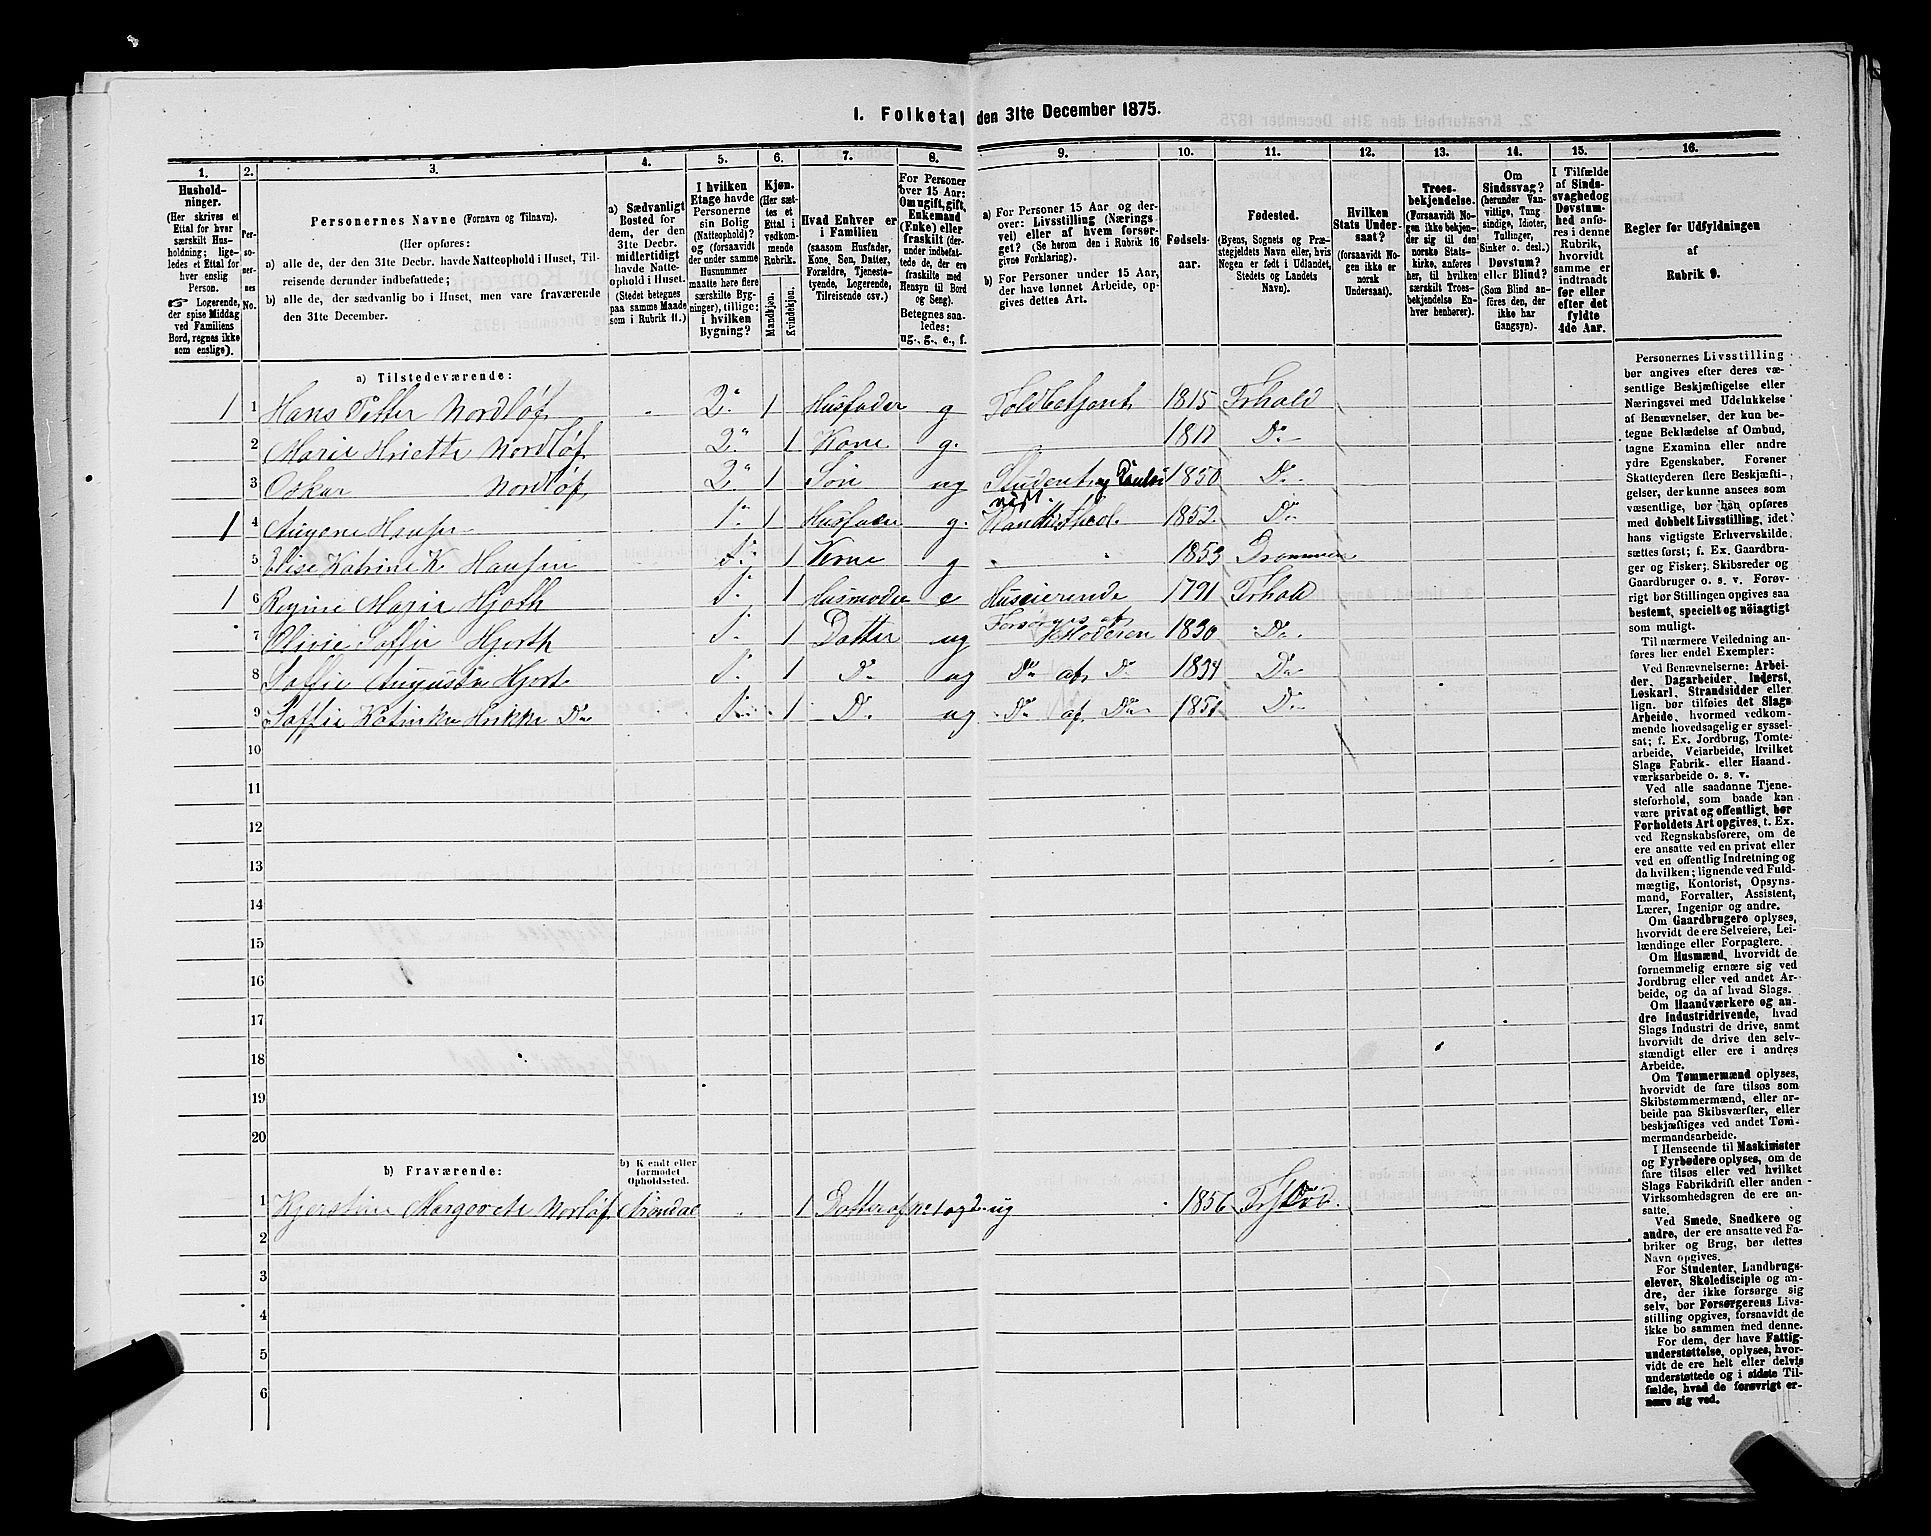 1. Folketal den 31te December 1875.
1. 2. 3. 4. 5. 6. 7. 8. 9. 10. 11. 12. 13. 14. 15. 16.
Hushold-
ninger.
(Her skrives et
Ettal for hver
særskilt Hus-
holdning; lige-
ledes et Ettal for
hver enslig
Person.
☞ Logerende,
der spise Middag
ved Familiens
Bord, regnes ikke
som enslige).
Per-
so-
ner-
nes
No.
Personernes Navne (Fornavn og Tilnavn).
(Her opføres:
a) alle de, der den 31te Decbr. havde Natteophold i Huset, Til-
reisende derunder indbefattede;
b) alle de, der sædvanlig bo i Huset, men vare fraværende
den 31te December.
a) Sædvanligt
Bosted for
dem, der den
31te Decbr.
midlertidigt
havde Natte-
ophold i Huset.
(Stedet betegnes
paa samme Maade
som i Rubrik 11.)
I hvilken
Etage havde
Personerne
sin Bolig
(Natteophold)?
og (forsaavidt
der under samme
Husnummer
maatte høre flere
særskilte Byg-
ninger), tillige:
i hvilken
Bygning?
Kjøn.
(Her sæt-
tes et
Ettal i
vedkom-
mende
Rubrik.
Mandkjøn.
Kvindekjøn.
Hvad Enhver er
i Familien
(saasom Husfader,
Kone, Søn, Datter,
Forældre, Tjeneste-
tyende, Logerende,
Tilreisende osv.)
For Personer
over 15 Aar:
Om ugift, gift,
Enkemand
(Enke) eller
fraskilt (der-
under indbefat-
tede de, der ere
fraskilte med
Hensyn til Bord
og Seng).
Betegnes saa-
ledes:
ug., g., e., f.
a) For Personer 15 Aar og der-
over: Livsstilling (Nærings
vei) eller af hvem forsør-
get? (Se herom den i Rubrik 16
givne Forklaring).
b) For Personer under 15 Aar,
der have lønnet Arbeide, op-
gives dettes Art.
Fødsels-
aar.
Fødested.
(Byens, Sognets og Præ-
stegjeldets Navn eller, hvis
Nogen er født i Udlandet,
Stedets og Landets
Navn).
Hvilken
Stats Under-
saat?
(forsaavidt No-
gen ikke er
norsk
Undersaat).
Troes-
bekjendelse.
(Forsaavidt No-
gen ikke bekjen-
der sig til den
norske Stats-
kirke, anføres
her, til hvilken
særskilt Troes-
bekjendelse En-
hver henhører).
Om
Sindssvag?
(herunder Van-
vittige, Tung
sindige, Idioter,
Tullinger,
Sinker o. desl.)
Døvstum?
eller Blind?
(Som Blind an-
føres den, der
ikke har
Gangsyn).
I Tilfælde
af Sinds-
svaghed og
Døvstum-
hed anfø-
res i denne
Rubrik,
hvorvidt
samme er
indtraadt
før eller
efter det
fyldte
4de Aar.
Regler før Udfyldningen
af
Rubrik 9.
a) Tilstedeværende:
1 1 Hans Petter Nordløf 2. 1 Husfader g Toldbetjent 1815 Frhald
2 Marie Nordløf 2. 1 Kone g. Do
3 Oskar Nordløf 2. 1 Søn ug Student og 1850 Do
1 4 Hansen 1. 1 g. 1852 Do
5 Elise Katrine K. Hansen 1 Kone g 1853 Drammen
1 6 Regine Marie Hjorth 1 Husmoder e Huseierende 1791 Frhald
7 Olivie Soffie Hjorth 1 Datter ug Forsørges af Moderen 1830 Do
8 Soffie Augusta Hjort 1 Do ug Do af Do 1834 Do
9 Soffie Do 1 Do ug Do af Do 1851 Do
10
11
12
13
14
15
16
17
18
19
20
b) Fraværende:
b) Kjendt eller
formodet
Opholdssted.
1 Margarete Norløf 1 Datter af ug 1856
2
3
4
5
6
Personernes Livsstilling
bør angives efter deres væ-
sentlige Beskjæftigelse eller
Næringsvei med Udelukkelse
af Benævnelser, der kun be-
tegne Beklædelse af Ombud,
tagne Examina eller andre
ydre Egenskaber. Forener
Skatteyderen flere Beskjæfti-
gelser, der kunne ansees som
væsentlige, bør han opføres
med dobbelt Livsstilling, idet
hans vigtigste Erhvervskilde
sættes først; f. Ex. Gaardbru-
ger og Fisker; Skibsreder og
Gaardbruger o. s. v. Forøv-
rigt bør Stillingen opgives saa
bestemt, specielt og nöiagtigt
som muligt.
Til nærmere Veiledning an-
føres her endel Exempler:
Ved Benævnelserne: Arbei-
der, Dagarbeider, Inderst,
Løskarl, Strandsidder eller
lign. bør tilføies det Slags
Arbeide, hvormed vedkom-
mende hovedsagelig er syssel-
sat; f. Ex. Jordbrug, Tomte-
arbeide, Veiarbeide, hvilket
Slags Fabrik- eller Haand-
værksarbeide o. s. v.
Ved alle saadanne Tjene-
steforhold, som baade kan
være privat og offentligt, bør
Forholdets Art opgives, t. Ex.
ved Regnskabsførere, om de
ere ansatte ved en privat eller
ved en offentlig Indretning og
da hvilken; lignende ved Fuld-
mægtig, Kontorist, Opsyns-
mand, Forvalter, Assistent,
Lærer, Ingeniør og andre.
Om Gaardbrugere oplyses,
hvorvidt de ere Selveiere, Lei-
lændinge eller Forpagtere.
Om Husmænd, hvorvidt de
fornemmelig ernære sig ved
Jordbrug eller ved andet Ar-
beide, og da af hvad Slags.
Om Haandværkere og an-
dre Industridrivende, hvad
Slags Industri de drive, samt
hvorvidt de drive den selv-
stændigt eller ere i andres
Arbeide.
Om Tømmermænd oplyses,
hvorvidt de fare tilsøs som
Skibstømmermænd, eller ar-
beide paa Skibsværfter, eller
beskjæftiges ved andet Tøm-
mermandsarbeide.
I Henseende til Maskinister
og Fyrbødere oplyses, om de
fare tilsøs eller ved hvilket
Slags Fabrikdrift eller anden
Virksomhedsgren de ere an-
satte.
Ved Smede, Snedkere og
andre, der ere ansatte ved Fa-
briker og Brug, bør dettes
Navn opgives.
For Studenter, Landbrugs-
elever, Skoledisciple og an-
dre, der ikke forsørge sig
selv, bør Forsørgerens Livs-
stilling opgives, forsaavidt de
ikke bo sammen med denne.
For dem, der have Fattig-
understøttelse, oplyses, hvor-
vidt de ere helt eller delvis
understøttede og i sidste Til-
fælde, hvad de forøvrigt er-
nære sig ved.